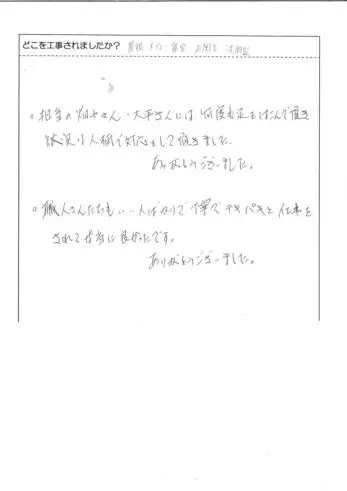 どこを工事されましたか? 屋根 トイレ 寝室 玄関 洗面台
○担当の畑中さん・大平さんには何度も足をはこんで頂き
誠実な人柄で対応をして頂きました。
ありがとうございました。
○職人さんたちもいい人ばかりで丁寧でテキパキと仕事を
されて本当に良かったです。
ありがとうございました。